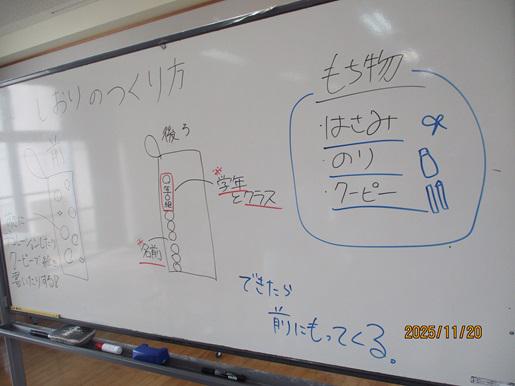 しおりのつくり方
前
クーピーで絵を
書いたりする?
後ろ
○年○組
※学年
とクラス
※名前
もち物
・はさみ
・のり
・クーピー
できたら
前にもってくる。
2025/11/20